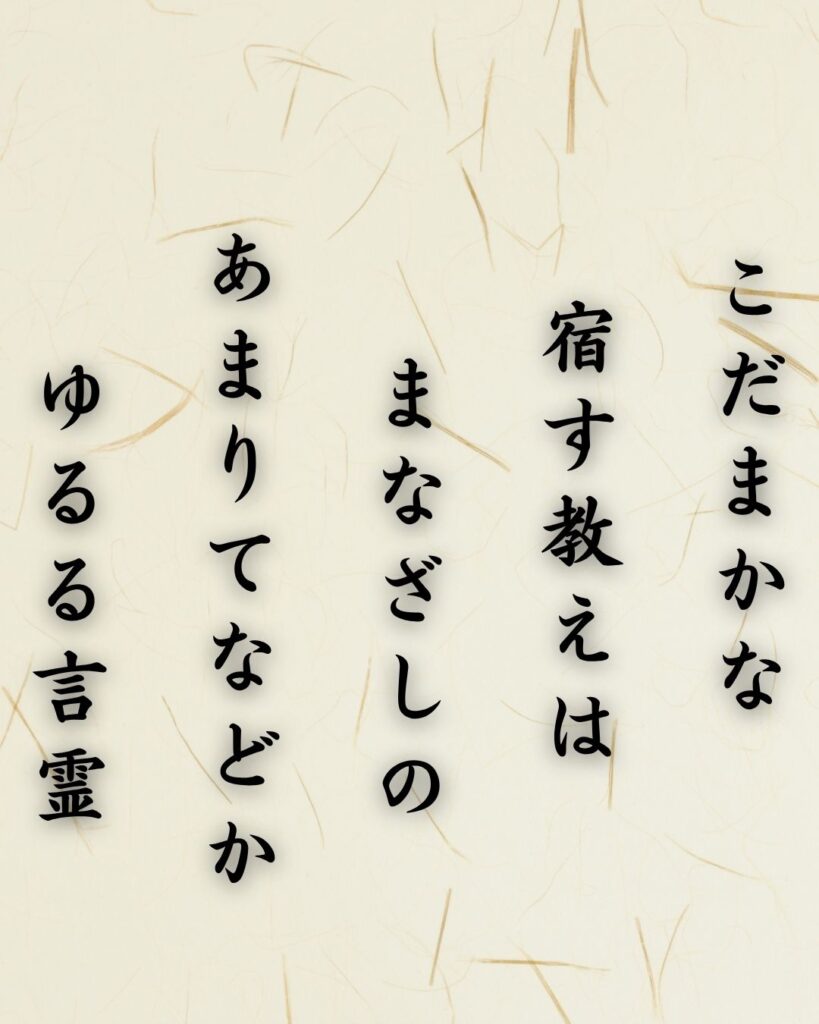 こだまかな
宿す教えは
まなざしの
あまりてなどか
ゆるる言霊